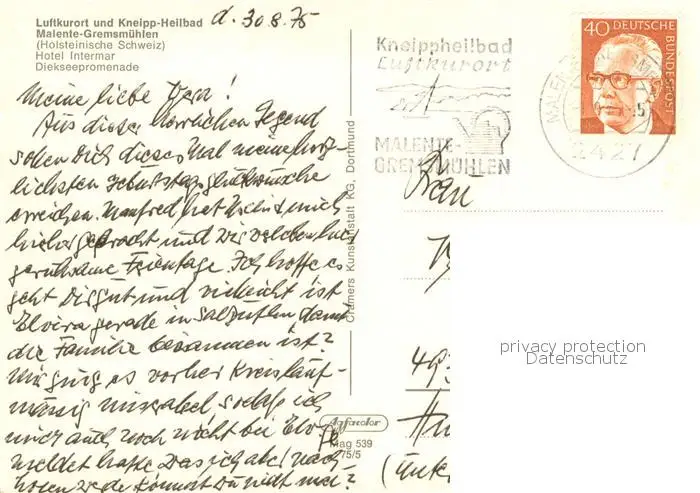 Luftkurort und Kneipp-Heilbad
Malente-Gremsmühlen
(Holsteinische Schweiz)
Hotel Intermar
Diekseepromenade
d. 30.8.75
Meine liebe !
Aus dieser herrlichen Gegend
sollen Dich dieses Mal meine herz-
lichsten Geburtstagsglückwünsche
erreichen. Manfred hat und mich
hierher gebracht und wir
geruhsame Ferientage. Ich hoffe es
geht Dir gut und vielleicht ist
Elvira gerade in Salzuflen damit
die Familie beisammen ist?
Mir ging es vorher kreislauf-
mässig miserabel sodaß ich
mich auch noch nicht bei
gemeldet hatte was ich aber nach-
holen werde. Kommst Du nicht mal?
Cramers Kunstanstalt KG, Dortmund
Agfacolor
Mag 539
75/5
Kneippheilbad
Luftkurort
MALENTE-
GREMSMÜHLEN
2427
40 DEUTSCHE
BUNDESPOST
Frau
49
privacy protection
Datenschutz